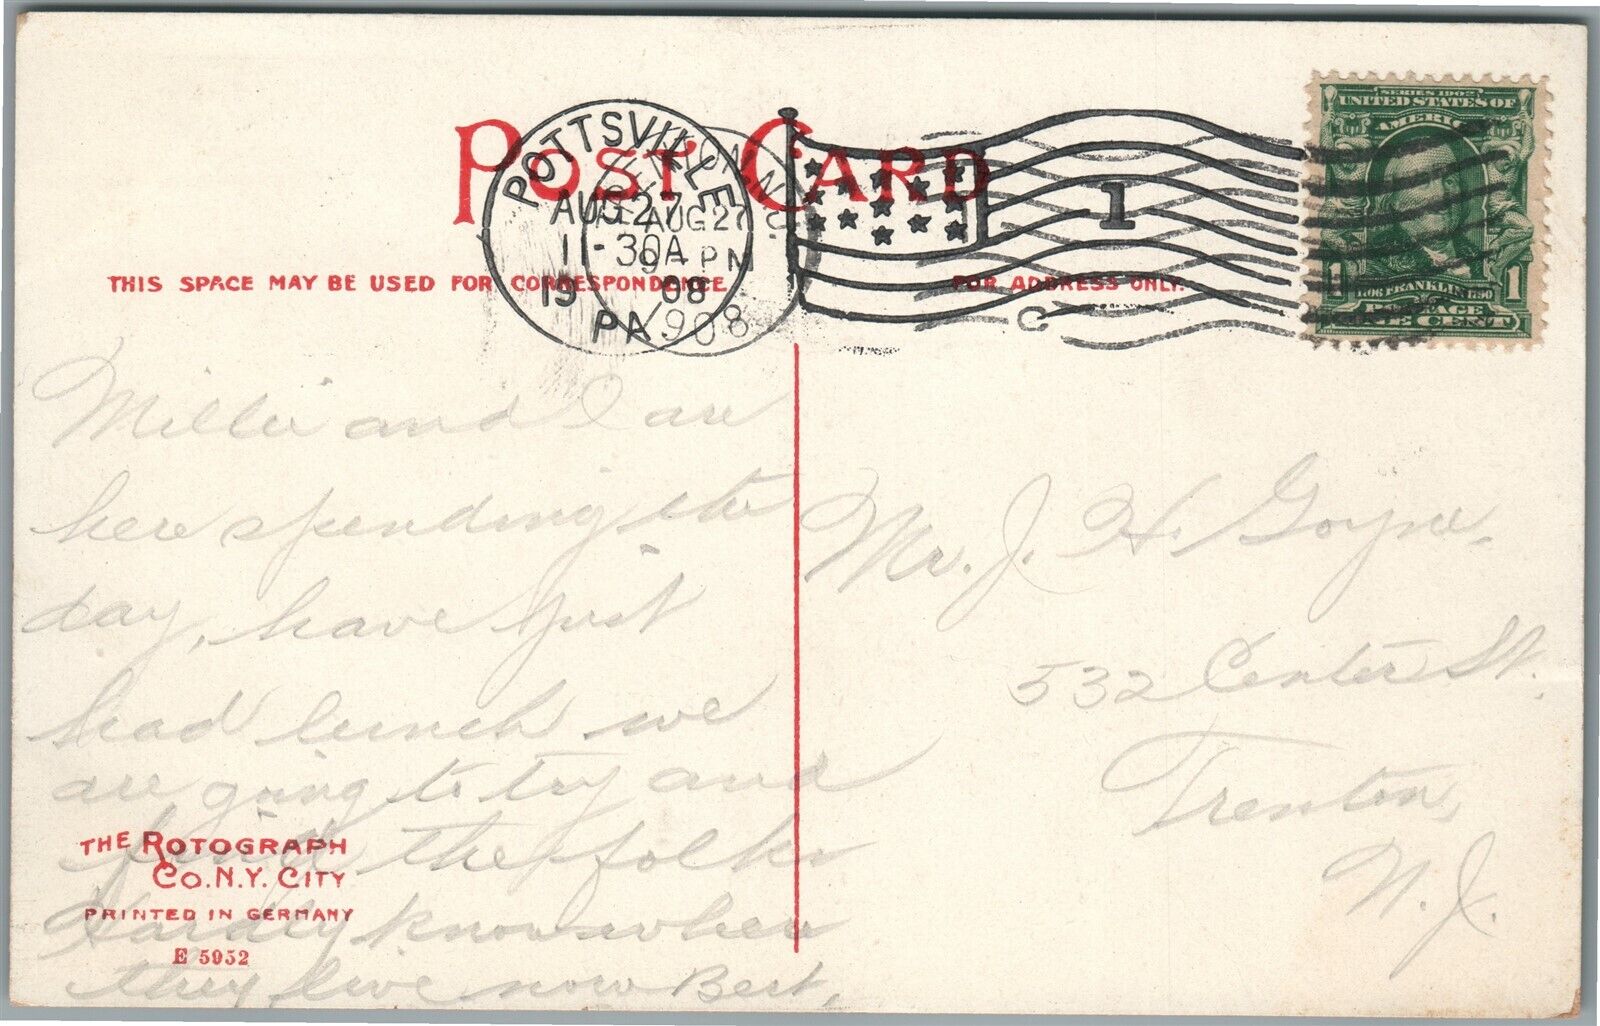 POST CARD
POTTSVILLE
AUG 27
11-30A
19 08
PA.
TRENTON, N.J.
AUG 27
9- PM
1908
1
C
SERIES 1902
UNITED STATES OF
AMERICA
1706 FRANKLIN 1790
1 1
POSTAGE
ONE CENT
THIS SPACE MAY BE USED FOR CORRESPONDENCE
FOR ADDRESS ONLY.
Millie and I are
here spending the
day, have just
had lunch we
are going to try and
find the folks
Hardly know where
they live now Bert,
Mr. J. H. Goyne,
532 Center St.
Trenton,
N. J.
THE ROTOGRAPH
CO. N.Y. CITY
PRINTED IN GERMANY
E 5952